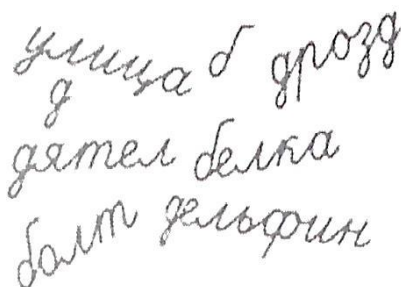 улица б дрозд
д
дятел белка
болт дельфин